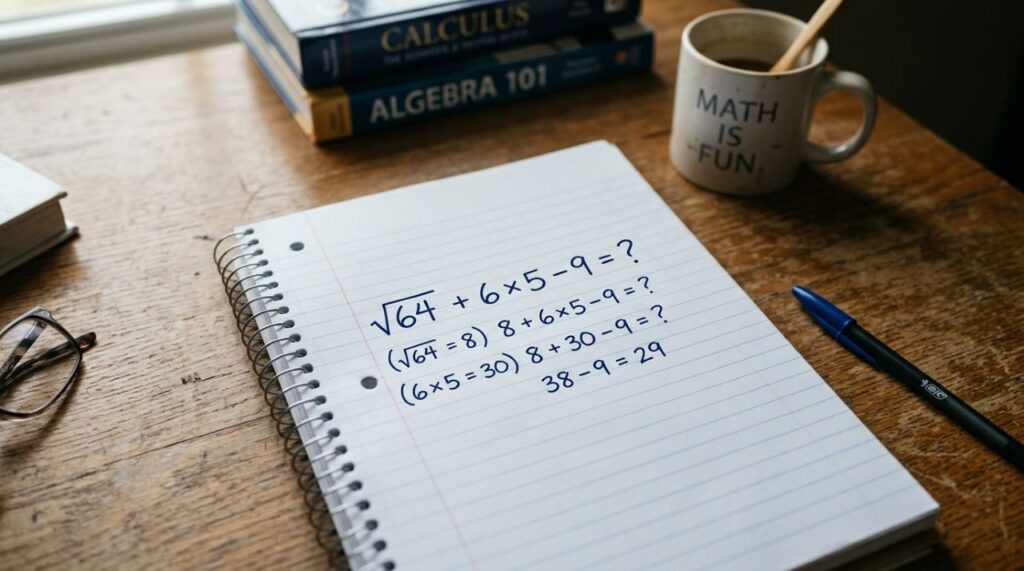 CALCULUS
ALGEBRA 101
MATH
IS
FUN
√64 + 6×5-9=?
(√64 = 8) 8+6×5-9=?
(6×5=30) 8+30-9=?
38-9=29
BIC